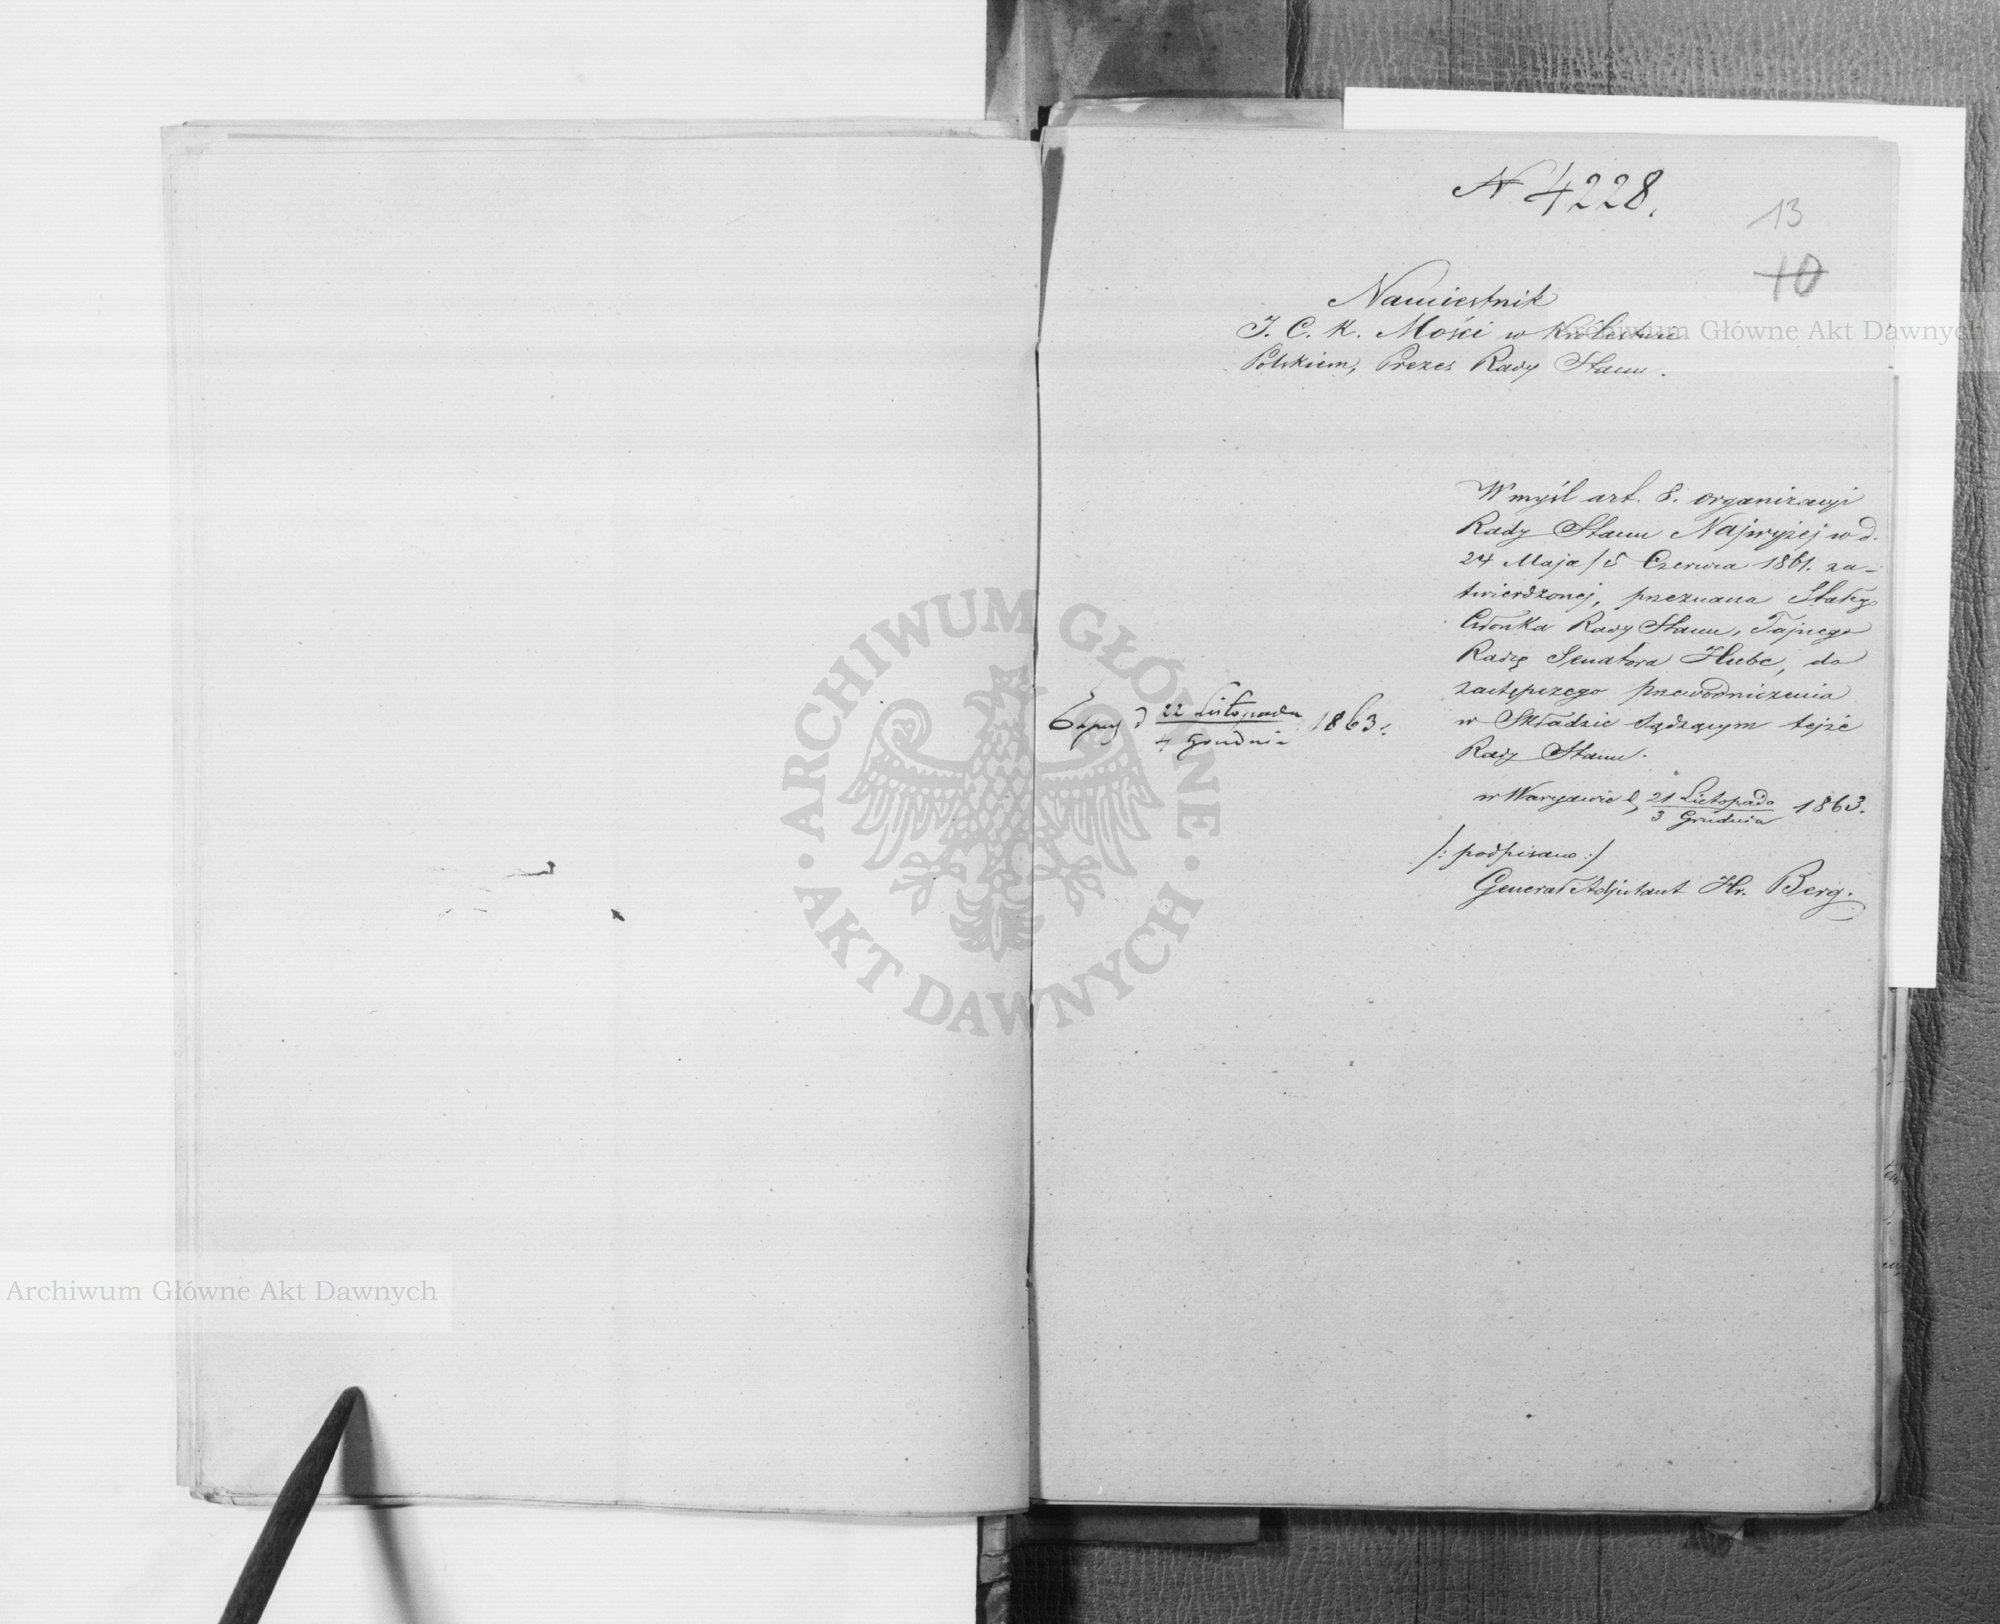 N 4228.
13
10
Namiestnik
J. C. K. Mości w Królestwie
Polskiem, Prezes Rady Stanu.
W myśl art. 8. organizacyi
Rady Stanu Najwyżej w d.
24 Maja / 5 Czerwca 1861. za-
twierdzonej, przeznacza Stałego
Członka Rady Stanu, Tajnego
Radzę Senatora Hube, do
zastępczego przewodniczenia
w Składzie Sądzącym tejże
Rady Stanu.
w Warszawie d. 21 Listopada / 3 Grudnia 1863.
/: podpisano :/
Generał Adjutant Hr. Berg.
d 22 Listopada / 4 Grudnia 1863.
ARCHIWUM GŁÓWNE
AKT DAWNYCH
Archiwum Główne Akt Dawnych
Archiwum Główne Akt Dawnych